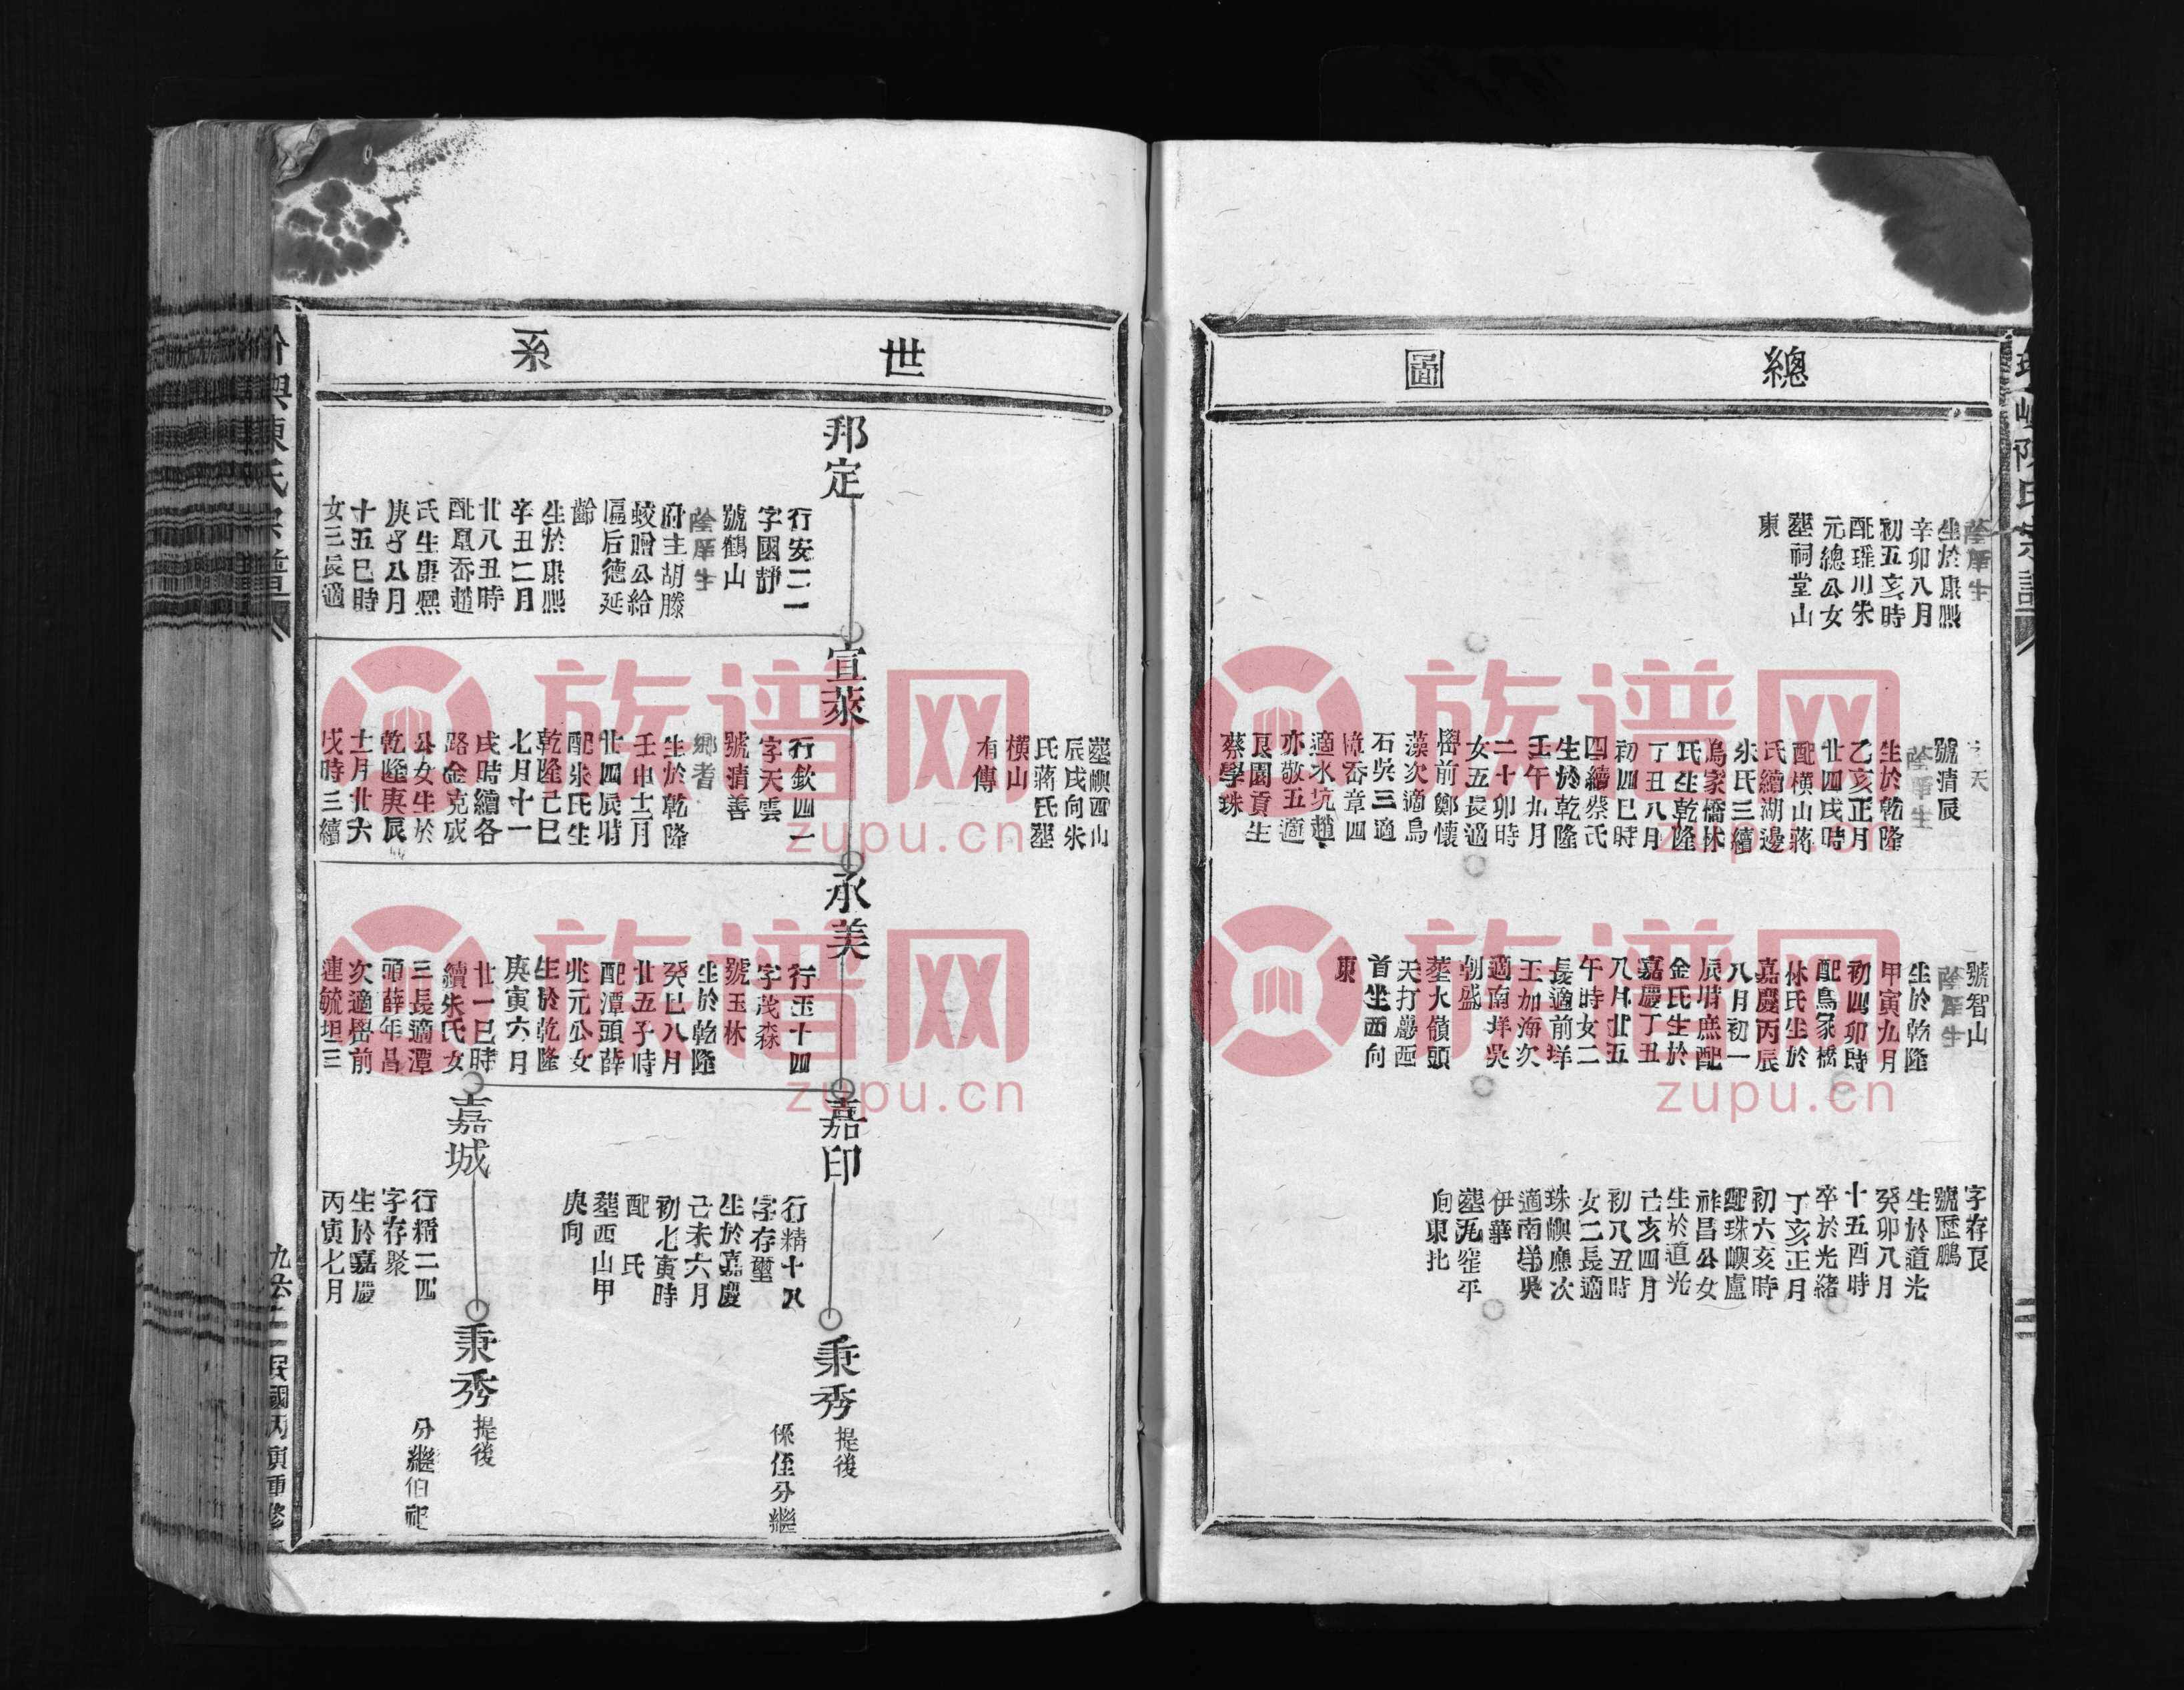 總圖
廕庠生
生於康熙
辛卯八月
初五亥時
配瑤川朱
元總公女
墓祠堂山
東
號清辰
廕庠生
生於乾隆
乙亥正月
廿四戌時
配橫山蔣
氏續湖邊
朱氏三續
塢家橋林
氏生乾隆
丁丑八月
初四巳時
四續蔡氏
生於乾隆
壬午九月
二十卯時
女五長適
嶨前鄭懷
藻次適烏
石吳三適
樟岙章四
適水坑趙
亦敬五適
艮園貢生
蔡學珠
號智山
廕庠生
生於乾隆
甲寅九月
初四卯時
配鳥家橋
林氏生於
嘉慶丙辰
八月初一
辰時庶配
金氏生於
嘉慶丁丑
八月廿五
午時女二
長適前垟
王加海次
適南垟吳
朝盛
墓大嶺頭
天打巖西
首坐西向
東
字存良
號歷鵬
生於道光
癸卯八月
十五酉時
卒於光緒
丁亥正月
初六亥時
配珠嶼盧
祚昌公女
生於道光
己亥四月
初八丑時
女二長適
珠嶼應次
適南垟吳
伊華
墓九窑平
向東北
世系
邦定
行安二一
字國靜
號鶴山
廕庠生
府主胡滕
蛟贈公給
匾后德延
齡
生於康熙
辛丑二月
廿八丑時
配鳳岙趙
氏生康熙
庚子八月
十五巳時
女三長適
墓嶼西山
辰戌向朱
氏蔣氏墓
橫山
有傳
宣萊
行欽四一
字天雲
號清善
鄉耆
生於乾隆
壬申十二月
廿四辰時
配朱氏生
乾隆己巳
七月十一
戌時續各
路金克成
公女生於
乾隆庚辰
十二月廿六
戌時三續
承美
行玉十四
字茂森
號玉林
生於乾隆
癸巳八月
廿五子時
配潭頭薛
兆元公女
生於乾隆
庚寅六月
廿一巳時
續朱氏女
三長適潭
頭薛年昌
次適嶨前
連毓坦三
嘉印
行精十八
字存璽
生於嘉慶
己未六月
初七寅時
配　氏
墓西山甲
庚向
秉秀 提後
係侄分繼
嘉城
行精二四
字存聚
生於嘉慶
丙寅七月
秉秀 提後
分繼伯祀
九六二 民國丙寅重修
族谱网
zupu.cn
族谱网
zupu.cn
族谱网
zupu.cn
族谱网
zupu.cn